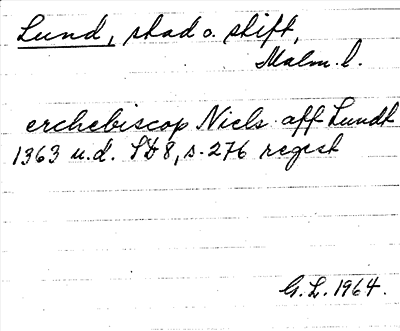 Lund, stad o. stift,
Malm. l.
erchebiscop Niels aff Lundt
1363 u.d. SD 8, s. 276 regest
G. L. 1964.